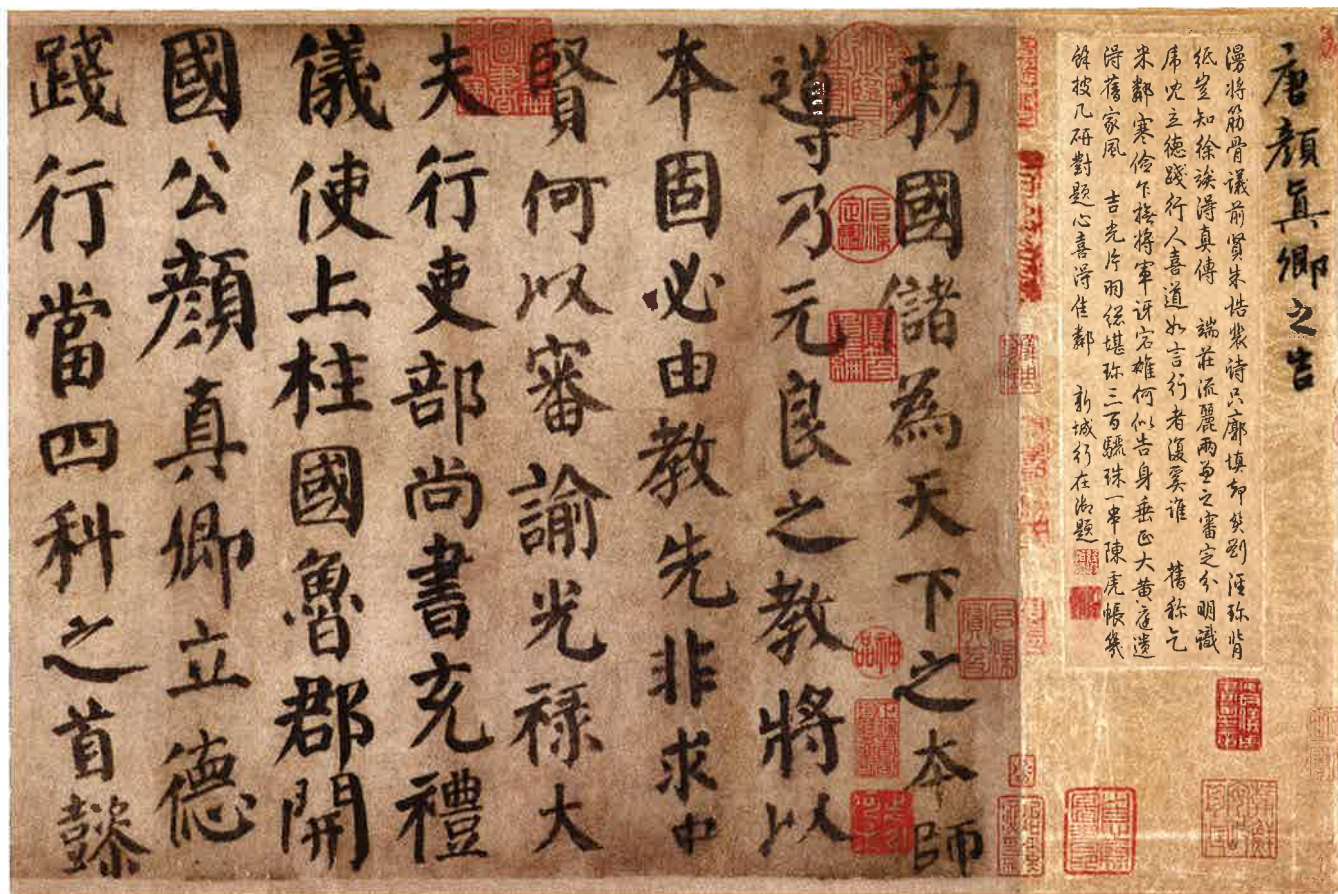 唐顏真卿之告
漫將筋骨議前賢朱誥裴詩只廓填却笑劉涇珍背
紙豈知徐得真傳 端莊流麗兩兼之審定分明識
虎兒立德踐行人喜道如言行者復奚誰 舊稱乞
米鄰寒儉乍橅將軍訝宕雄何似告身垂正大黃庭遺
得舊家風 吉光片羽總堪珍三百驪珠一串陳虎帳幾
餘披几研對題心喜得佳鄰 新城行在御題
勅國儲為天下之本師
導乃元良之教將以
本固必由教先非求中
賢何以審諭光禄大
夫行吏部尚書充禮
儀使上柱國魯郡開
國公顏真卿立德
踐行當四科之首懿